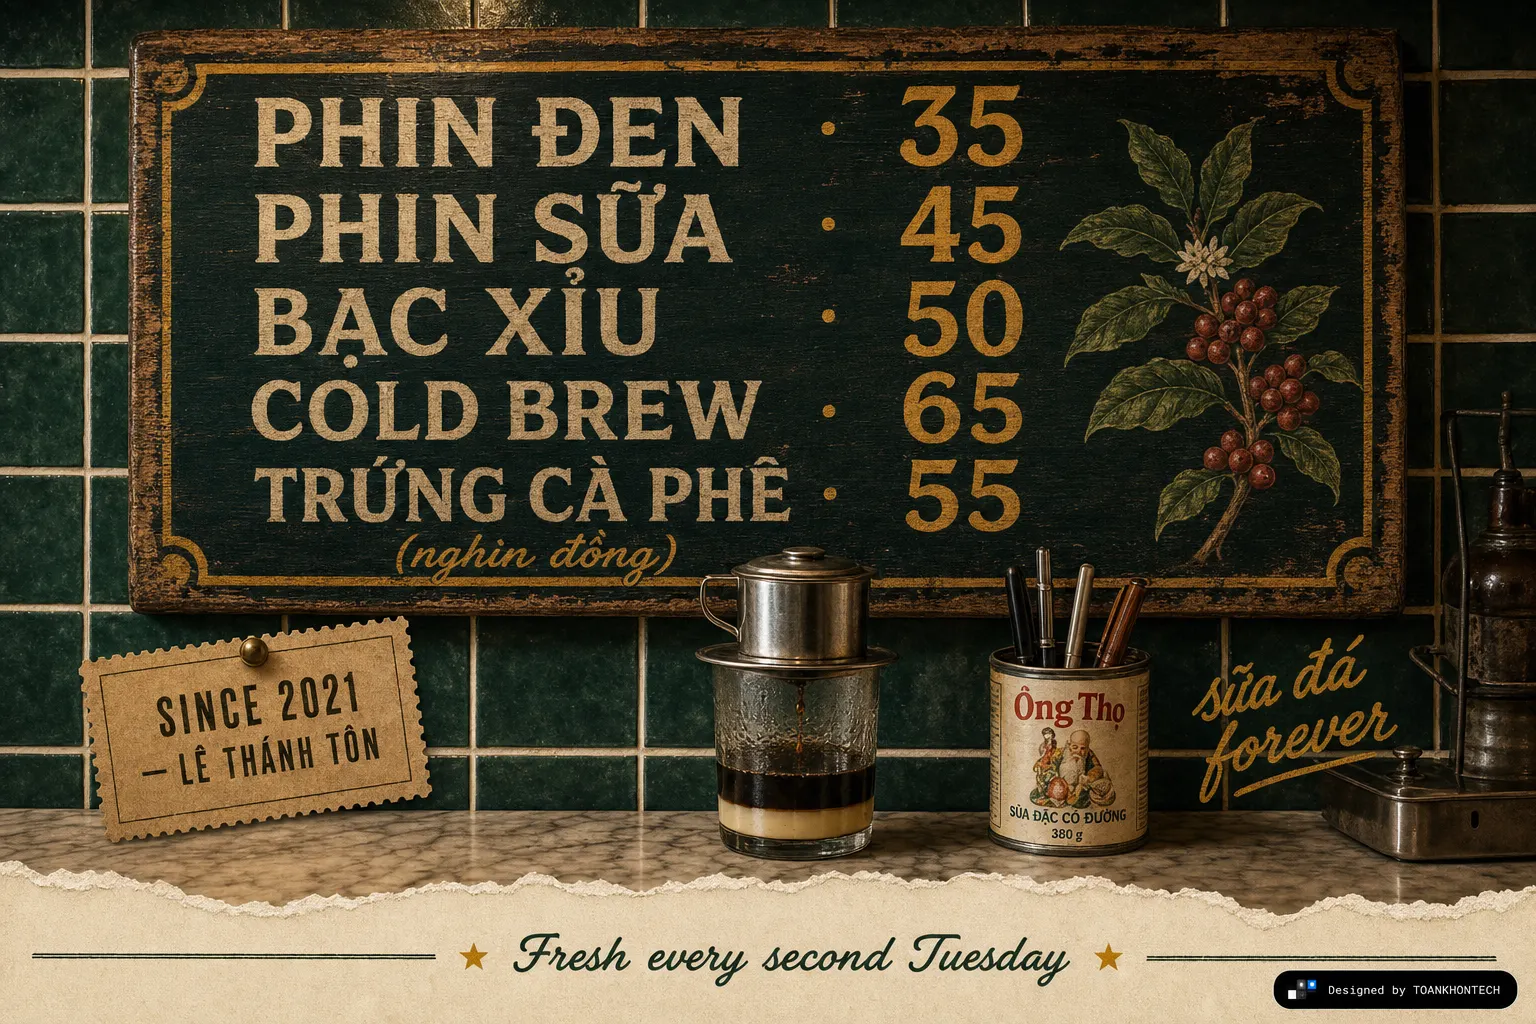 PHIN ĐEN · 35
PHIN SỮA · 45
BẠC XỈU · 50
COLD BREW · 65
TRỨNG CÀ PHÊ · 55
(nghìn đồng)
SINCE 2021
— LÊ THÁNH TÔN
Ông Thọ
SỮA ĐẶC CÓ ĐƯỜNG
380 g
sữa đá
forever
★ Fresh every second Tuesday ★
Designed by TOANKHONTECH